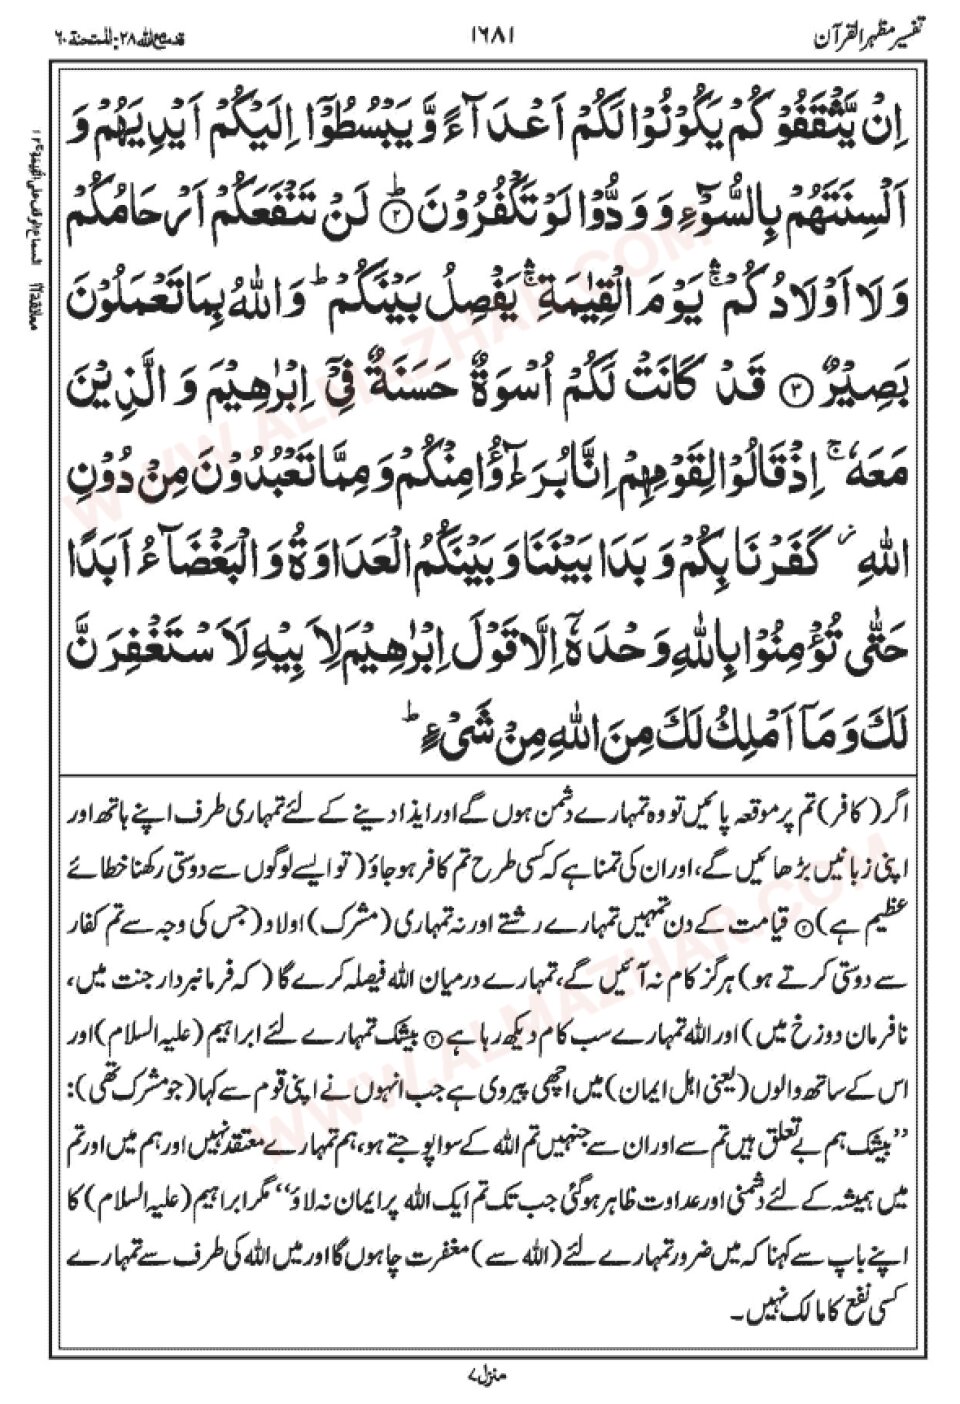 تفسیر مظہر القرآن ١٦٨١ قد سمع اللہ ٢٨: الممتحنة ٦٠
اِنْ یَّثْقَفُوْكُمْ یَكُوْنُوْا لَكُمْ اَعْدَآءً وَّ یَبْسُطُوْۤا اِلَیْكُمْ اَیْدِیَهُمْ وَ
اَلْسِنَتَهُمْ بِالسُّوْٓءِ وَ وَدُّوْا لَوْ تَكْفُرُوْنَؕ۝۲ لَنْ تَنْفَعَكُمْ اَرْحَامُكُمْ
وَ لَاۤ اَوْلَادُكُمْ ۛۚ یَوْمَ الْقِیٰمَةِ ۛۚ یَفْصِلُ بَیْنَكُمْ ؕ وَ اللّٰهُ بِمَا تَعْمَلُوْنَ
بَصِیْرٌ۝۳ قَدْ كَانَتْ لَكُمْ اُسْوَةٌ حَسَنَةٌ فِیْۤ اِبْرٰهِیْمَ وَ الَّذِیْنَ
مَعَهٗ ۚ اِذْ قَالُوْا لِقَوْمِهِمْ اِنَّا بُرَءٰٓؤُا مِنْكُمْ وَ مِمَّا تَعْبُدُوْنَ مِنْ دُوْنِ
اللّٰهِ ؗ كَفَرْنَا بِكُمْ وَ بَدَا بَیْنَنَا وَ بَیْنَكُمُ الْعَدَاوَةُ وَ الْبَغْضَآءُ اَبَدًا
حَتّٰى تُؤْمِنُوْا بِاللّٰهِ وَحْدَهٗۤ اِلَّا قَوْلَ اِبْرٰهِیْمَ لِاَبِیْهِ لَاَسْتَغْفِرَنَّ
لَكَ وَ مَاۤ اَمْلِكُ لَكَ مِنَ اللّٰهِ مِنْ شَیْءٍ ؕ
اگر (کافر) تم پر موقعہ پائیں تو وہ تمہارے دشمن ہوں گے اور ایذا دینے کے لئے تمہاری طرف اپنے ہاتھ اور
اپنی زبانیں بڑھائیں گے، اور ان کی تمنا ہے کہ کسی طرح تم کافر ہو جاؤ (تو ایسے لوگوں سے دوستی رکھنا خطائے
عظیم ہے)۝۲ قیامت کے دن تمہیں تمہارے رشتے اور نہ تمہاری (مشرک) اولاد (جس کی وجہ سے تم کفار
سے دوستی کرتے ہو) ہرگز کام نہ آئیں گے، تمہارے درمیان اللہ فیصلہ کرے گا (کہ فرمانبردار جنت میں،
نافرمان دوزخ میں) اور اللہ تمہارے سب کام دیکھ رہا ہے۝۳ بیشک تمہارے لئے ابراہیم (علیہ السلام) اور
اس کے ساتھ والوں (یعنی اہل ایمان) میں اچھی پیروی ہے جب انہوں نے اپنی قوم سے کہا (جو مشرک تھی):
”بیشک ہم بے تعلق ہیں تم سے اور ان سے جنہیں تم اللہ کے سوا پوجتے ہو، ہم تمہارے معتقد نہیں اور ہم میں اور تم
میں ہمیشہ کے لئے دشمنی اور عداوت ظاہر ہو گئی جب تک تم ایک اللہ پر ایمان نہ لاؤ“ مگر ابراہیم (علیہ السلام) کا
اپنے باپ سے کہنا کہ میں ضرور تمہارے لئے (اللہ سے) مغفرت چاہوں گا اور میں اللہ کی طرف سے تمہارے
کسی نفع کا مالک نہیں۔
منزل ۷
WWW.ALMAZHAR.COM
WWW.ALMAZHAR.COM